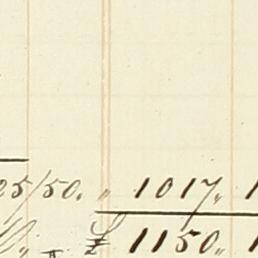 25/50. „ 1017„ 1
£ 1150„ 1